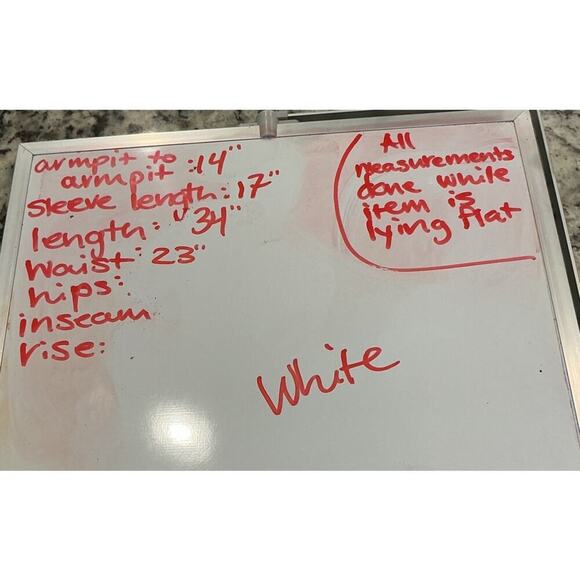 armpit to
armpit: 14"
Sleeve length: 17"
length: "34"
Waist: 23"
hips:
inseam
rise:
All
measurements
done while
item is
lying flat
White